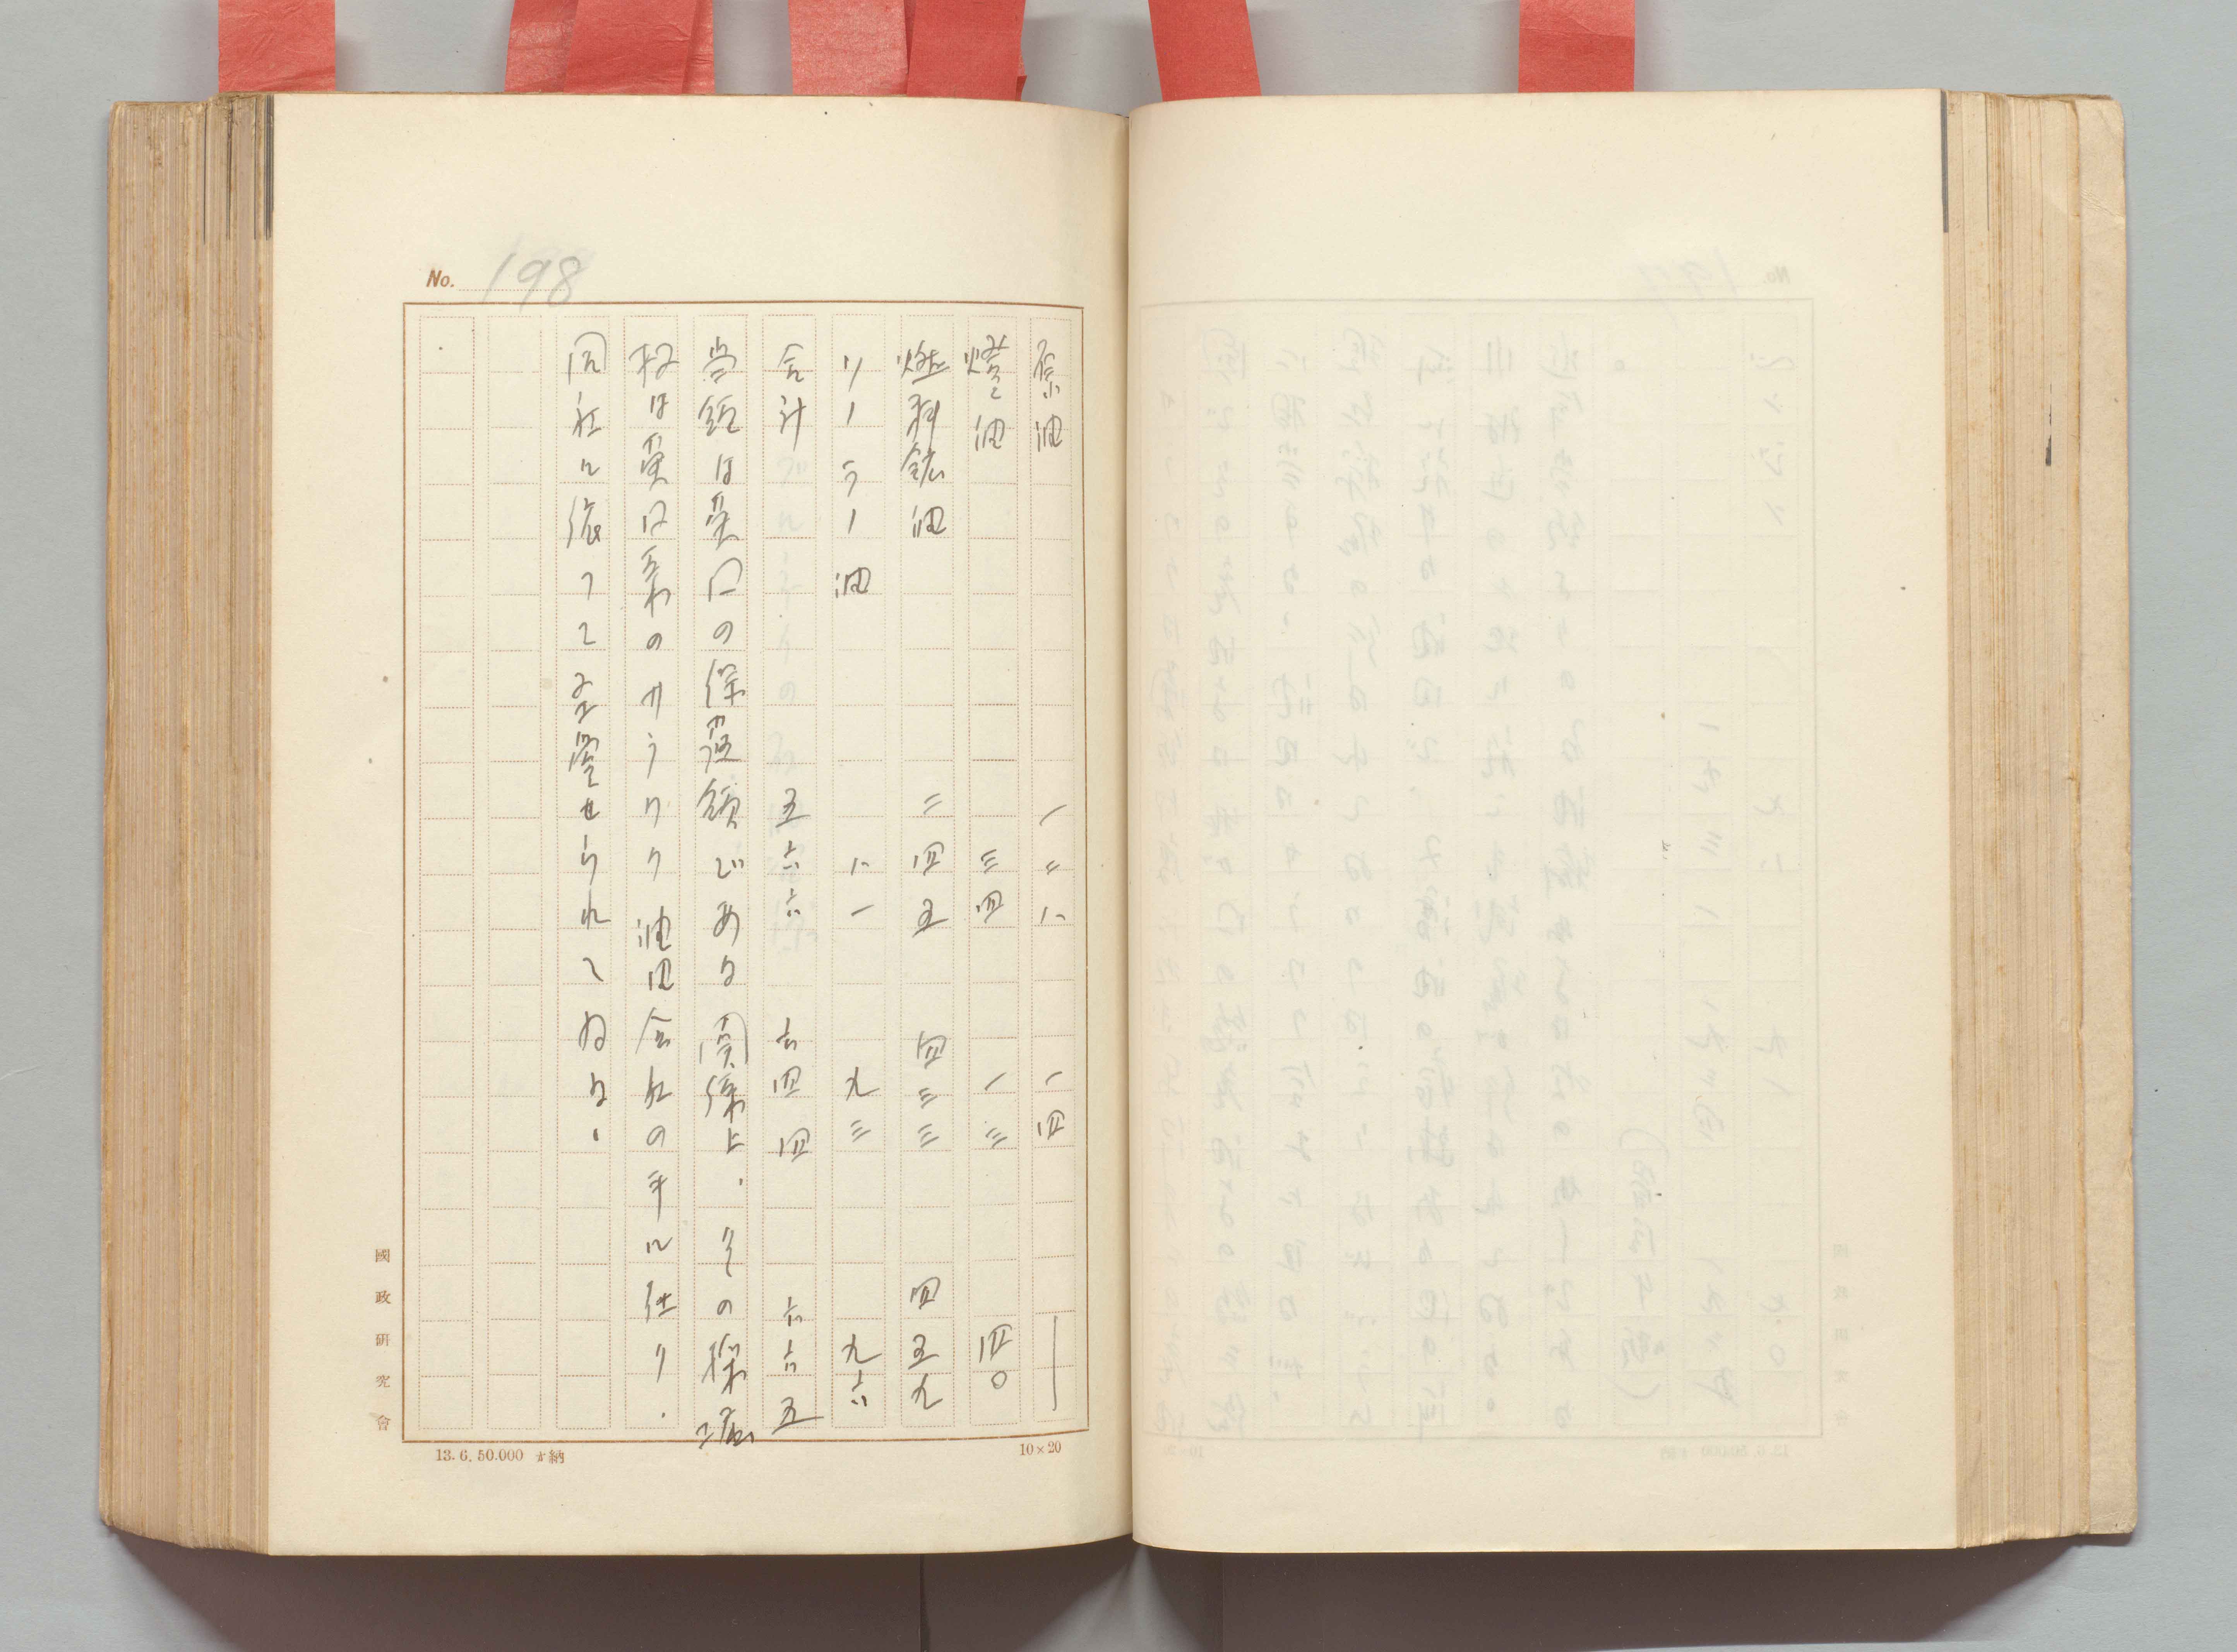 No. 198
原油　一二八　一四　―
燈油　三四　一三　四〇
燃料鉱油　二四五　四三三　四五九
ソーラー油　八一　九三　九六
合計　五六六　六四四　六六五
当領は英国の保護領である関係上、その採掘
权は英国系のサラワク油田会社の手に在り、
同社に依つて経営せられてゐる。
國政研究會
13. 6. 50.000 納
10×20